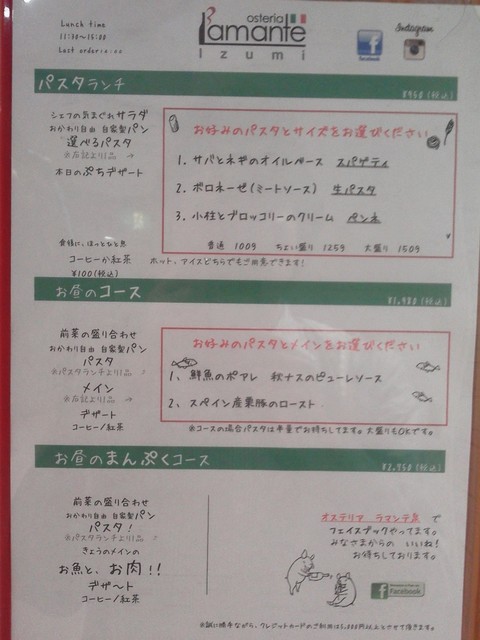 Lunch time
11:30〜15:00
Last order
osteria
L'amante
Izumi
facebook
Instagram
パスタランチ
(税込)
シェフの気まぐれサラダ
おかわり自由 自家製パン
選べるパスタ
※右記より1品 →
本日のぷちデザート
お好みのパスタとサイズをお選びください
1. サバとネギのオイルベース スパゲティ
2. ボロネーゼ(ミートソース) 生パスタ
3. 小柱とブロッコリーのクリーム ペンネ
普通 100g ちょい盛り 125g 大盛り 150g
食後に、ほっとひと息
コーヒーか紅茶 ホット、アイスどちらでもご用意できます!
¥100(税込)
お昼のコース
(税込)
前菜の盛り合わせ
おかわり自由 自家製パン
パスタ
※パスタランチより1品
メイン
※右記より1品 →
デザート
コーヒー/紅茶
お好みのパスタとメインをお選びください
1、鮮魚のポアレ 秋ナスのピューレソース
2、スペイン産栗豚のロースト
※コースの場合パスタは半量でお持ちしてます。大盛りもOKです。
お昼のまんぷくコース
(税込)
前菜の盛り合わせ
おかわり自由 自家製パン
パスタ!
※パスタランチより1品
きょうのメインの
お魚と、お肉!!
デザート
コーヒー/紅茶
オステリア ラマンテ泉 で
フェイスブックやってます。
みなさまからの いいね!
お待ちしております。
Facebook
※誠に勝手ながら、クレジットカードのご利用は5,000円以上とさせて頂きます。